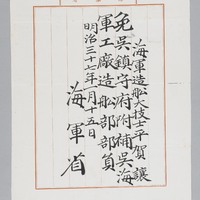 海軍造船大技士平賀讓
免呉鎮守府附補呉海
軍工廠造船部部員
明治三十七年一月十五日
海軍省